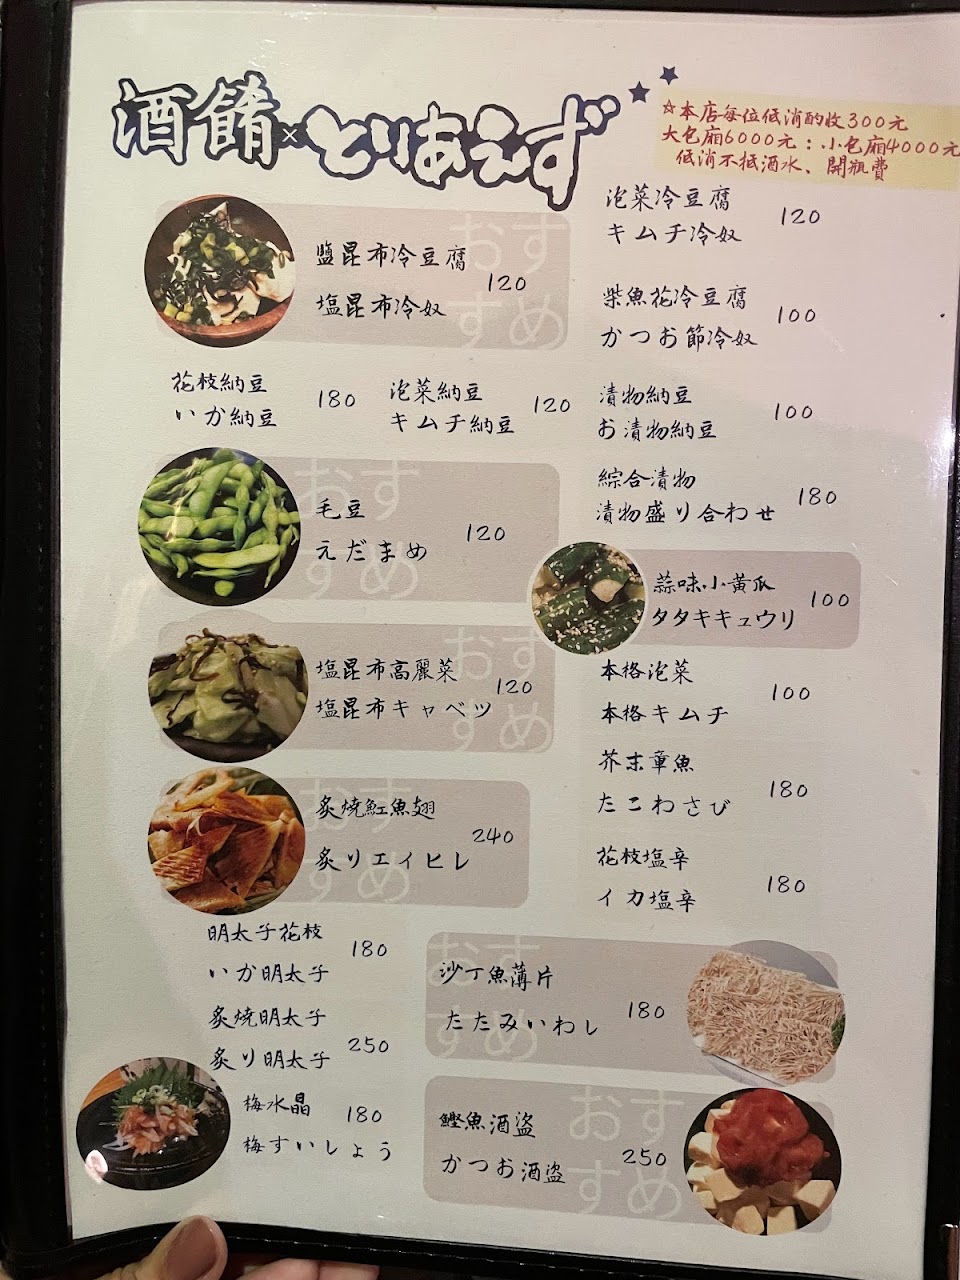 酒餚×とりあえず
☆本店每位低消酌收300元
大包廂6000元：小包廂4000元
低消不抵酒水、開瓶費
おすすめ
鹽昆布冷豆腐
塩昆布冷奴
120
泡菜冷豆腐
キムチ冷奴
120
柴魚花冷豆腐
かつお節冷奴
100
花枝納豆
いか納豆
180
泡菜納豆
キムチ納豆
120
漬物納豆
お漬物納豆
100
おすすめ
毛豆
えだまめ
120
綜合漬物
漬物盛り合わせ
180
蒜味小黃瓜
タタキキュウリ
100
おすすめ
塩昆布高麗菜
塩昆布キャベツ
120
本格泡菜
本格キムチ
100
芥末章魚
たこわさび
180
おすすめ
炙燒魟魚翅
炙りエイヒレ
240
花枝塩辛
イカ塩辛
180
明太子花枝
いか明太子
180
炙燒明太子
炙り明太子
250
おすすめ
沙丁魚薄片
たたみいわし
180
梅水晶
梅すいしょう
180
おすすめ
鰹魚酒盜
かつお酒盗
250